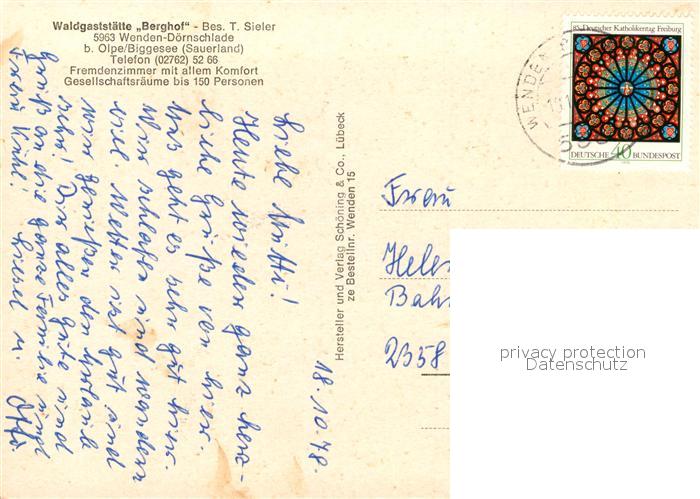 Waldgaststätte „Berghof" - Bes. T. Sieler
5963 Wenden-Dörnschlade
b. Olpe/Biggesee (Sauerland)
Telefon (02762) 52 66
Fremdenzimmer mit allem Komfort
Gesellschaftsräume bis 150 Personen
18.10.78.
Liebe Mutti!
Heute wieder ganz herz-
liche Grüße von hier.
Uns geht es sehr gut hier.
Wir schlafen und wandern
viel Wetter ist gut und
wir genießen den Urlaub
sehr! Dir alles gute und
Gruß an die ganze Familie und
Frau Kühl! Liesel u. Otto
Hersteller und Verlag Schöning & Co., Lübeck
ze Bestellnr. Wenden 15
85. Deutscher Katholikentag Freiburg
DEUTSCHE 40 BUNDESPOST
WENDE
Frau
Hele
Bah
2358
privacy protection
Datenschutz